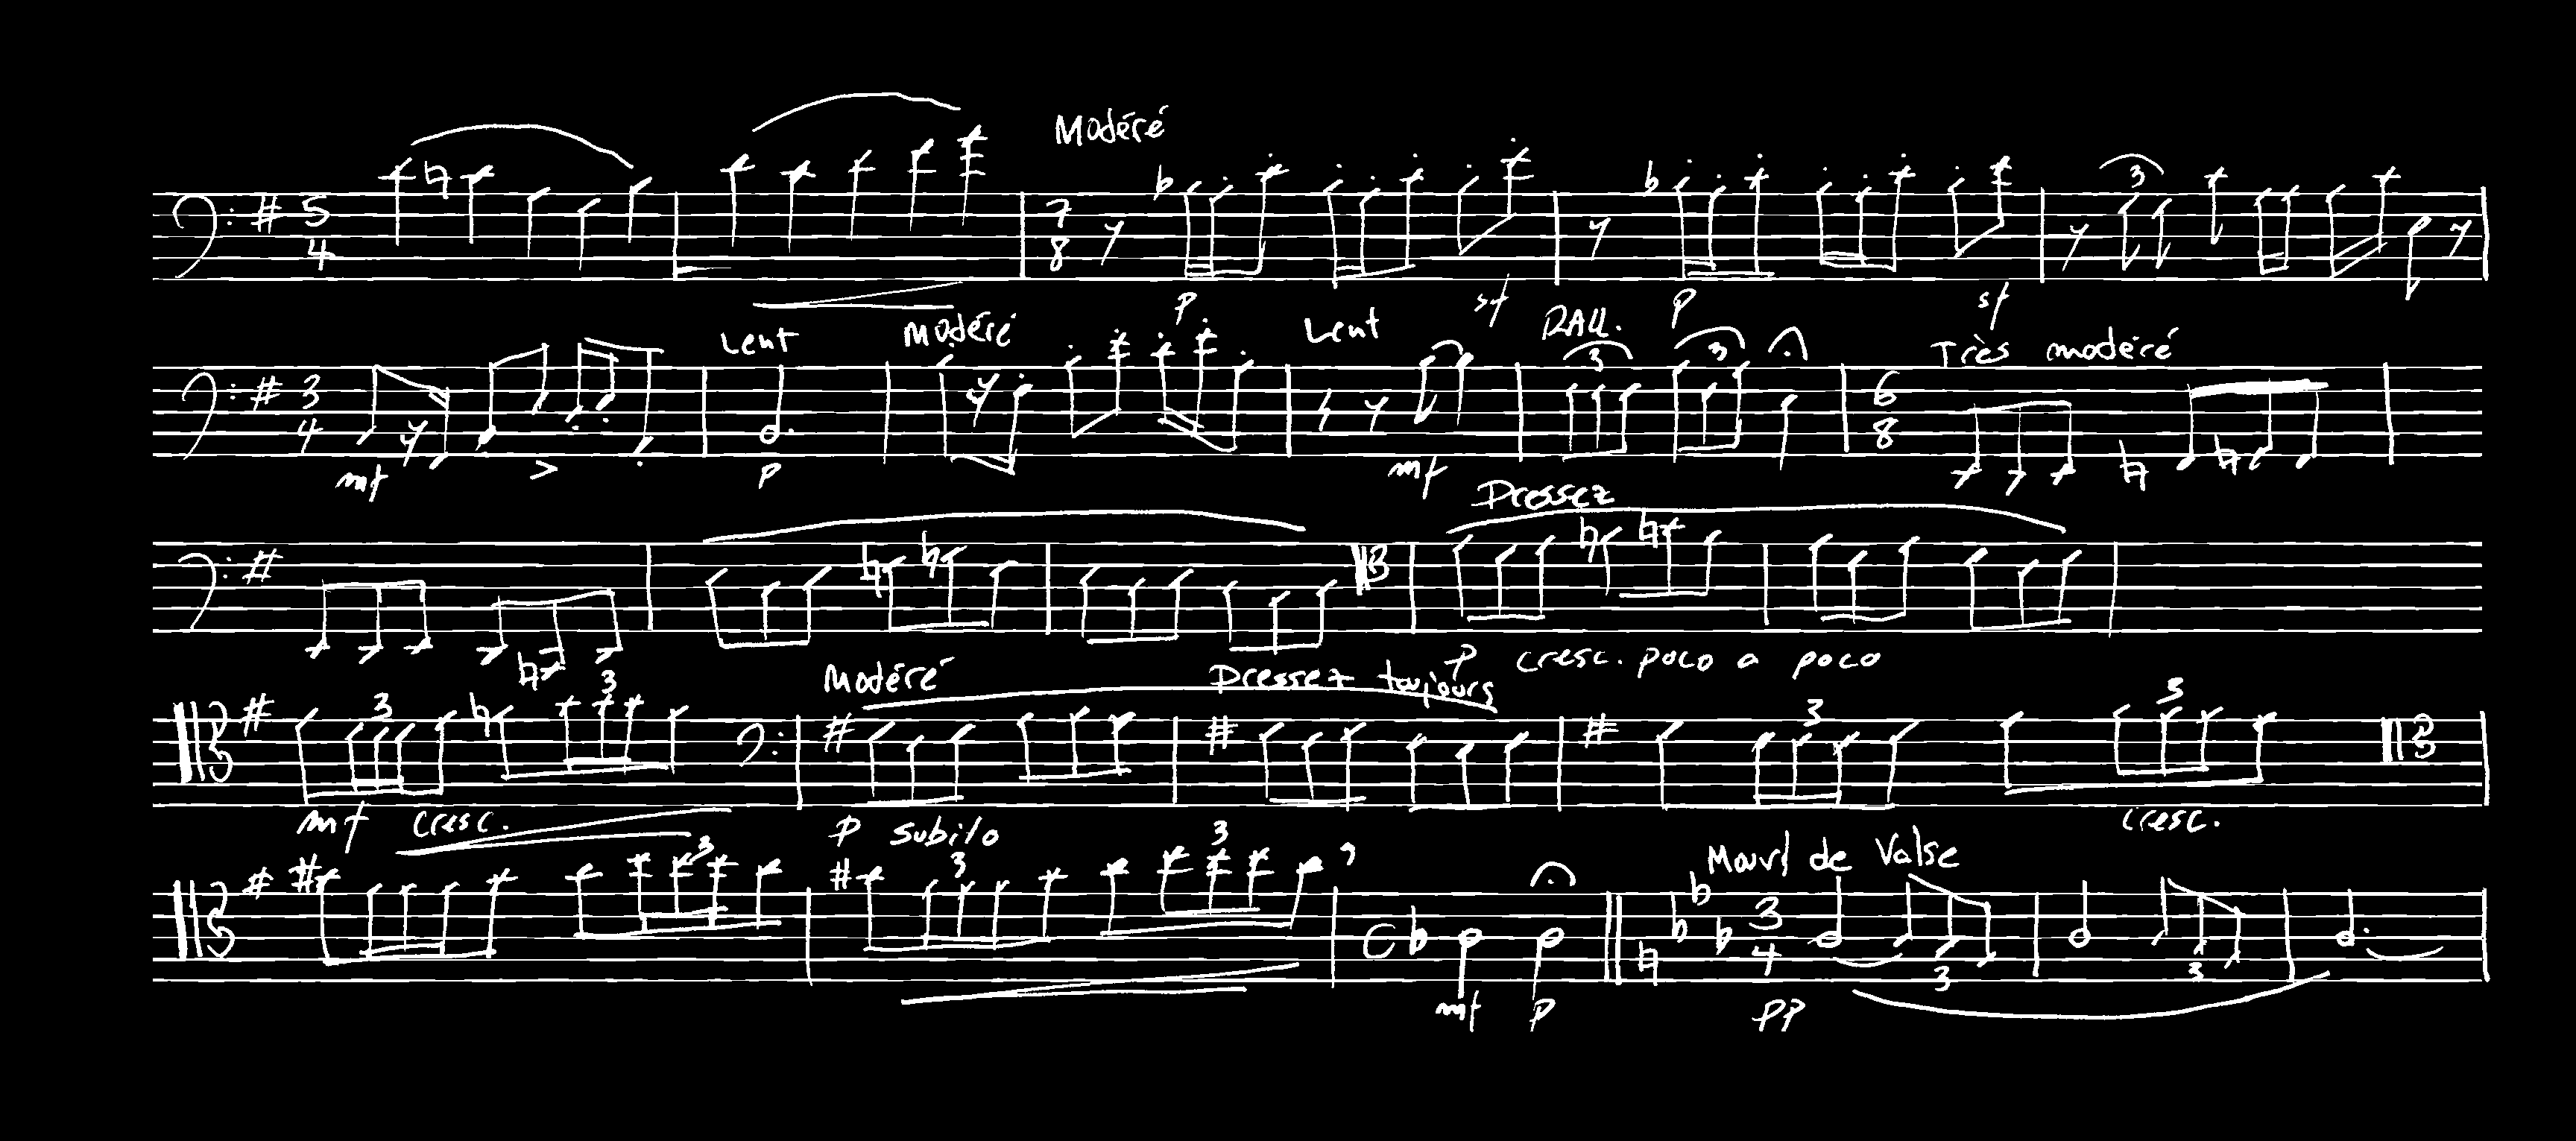 Modéré
5 4 7 8 p sf p sf 3
Lent Modéré Lent RALL. Très modéré
3 4 mf > p mf 3 3 6 8
Pressez
p cresc. poco a poco
Modéré Pressez toujours
3 3 3 3
mf cresc. p subito cresc.
Mouvt de Valse
3 3 3 C 3 4 3 3
mf p pp